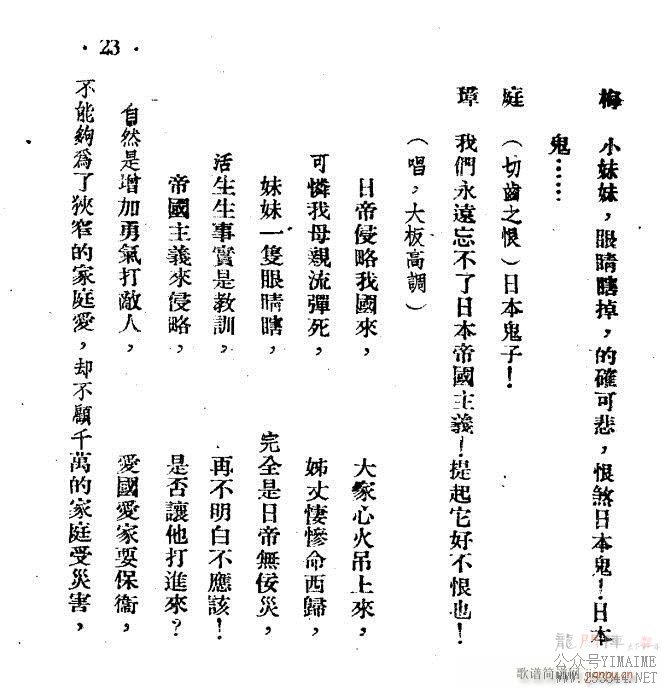 梅　小妹妹，眼睛瞎掉，的確可悲，恨煞日本鬼！日本
鬼……
庭　（切齒之恨）日本鬼子！
璋　我們永遠忘不了日本帝國主義！提起它好不恨也！
（唱，大板高調）
日帝侵略我國來，　大家心火吊上來，
可憐我母親流彈死，　姊丈悽慘命西歸，
妹妹一隻眼睛瞎，　完全是日帝無佞災，
活生生事實是教訓，　再不明白不應該！
帝國主義來侵略，　是否讓他打進來？
自然是增加勇氣打敵人，　愛國愛家要保衛，
不能夠爲了狹窄的家庭愛，却不顧千萬的家庭受災害，
·23·
公众号YIMAIME
歌谱简谱网